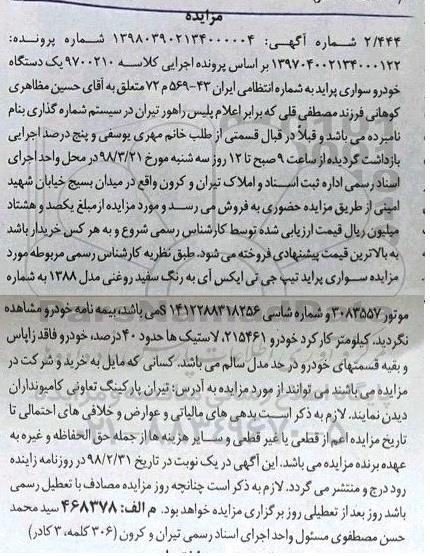 مزایده
۲/۴۴۴ شماره آگهی: ۱۳۹۸۰۳۹۰۲۱۳۴۰۰۰۰۰۴ شماره پرونده:
۱۳۹۷۰۴۰۰۲۱۳۴۰۰۰۱۲۲ بر اساس پرونده اجرایی کلاسه ۹۷۰۰۲۱۰ یک دستگاه
خودرو سواری پراید به شماره انتظامی ایران ۴۳-۵۶۹ م ۷۲ متعلق به آقای حسین مظاهری
کوهانی فرزند مصطفی قلی که برابر اعلام پلیس راهور تیران در سیستم شماره گذاری بنام
نامبرده می باشد و قبلاً در قبال قسمتی از طلب خانم مهری یوسفی و پنج درصد اجرایی
بازداشت گردیده از ساعت ۹ صبح تا ۱۲ روز سه شنبه مورخ ۹۸/۳/۲۱ در محل واحد اجرای
اسناد رسمی اداره ثبت اسناد و املاک تیران و کرون واقع در میدان بسیج خیابان شهید
امینی از طریق مزایده حضوری به فروش می رسد و مورد مزایده از مبلغ یکصد و هشتاد
میلیون ریال قیمت ارزیابی شده توسط کارشناس رسمی شروع و به هر کس خریدار باشد
به بالاترین قیمت پیشنهادی فروخته می شود. طبق نظریه کارشناس رسمی مربوطه مورد
مزایده سواری پراید تیپ جی تی ایکس آی به رنگ سفید روغنی مدل ۱۳۸۸ به شماره
موتور ۳۰۸۳۵۵۷ و شماره شاسی S۱۴۱۲۲۸۸۳۱۸۲۵۶ می باشد، بیمه نامه خودرو مشاهده
نگردید. کیلومتر کارکرد خودرو ۲۱۵۴۶۱، لاستیک ها حدود ۴۰ درصد، خودرو فاقد زاپاس
و بقیه قسمتهای خودرو در حد مدل سالم می باشد. کسانی که مایل به خرید و شرکت در
مزایده می باشند می توانند از مورد مزایده به آدرس: تیران پارکینگ تعاونی کامیونداران
دیدن نمایند. لازم به ذکر است بدهی های مالیاتی و عوارض و خلافی های احتمالی تا
تاریخ مزایده اعم از قطعی یا غیر قطعی و سایر هزینه ها از جمله حق الحفاظه و غیره به
عهده برنده مزایده می باشد. این آگهی در یک نوبت در تاریخ ۹۸/۲/۳۱ در روزنامه زاینده
رود درج و منتشر می گردد. لازم به ذکر است چنانچه روز مزایده مصادف با تعطیل رسمی
باشد روز بعد از تعطیلی روز برگزاری مزایده خواهد بود. م الف: ۴۶۸۳۷۸ سید محمد
حسن مصطفوی مسئول واحد اجرای اسناد رسمی تیران و کرون (۳۰۶ کلمه، ۳ کادر)